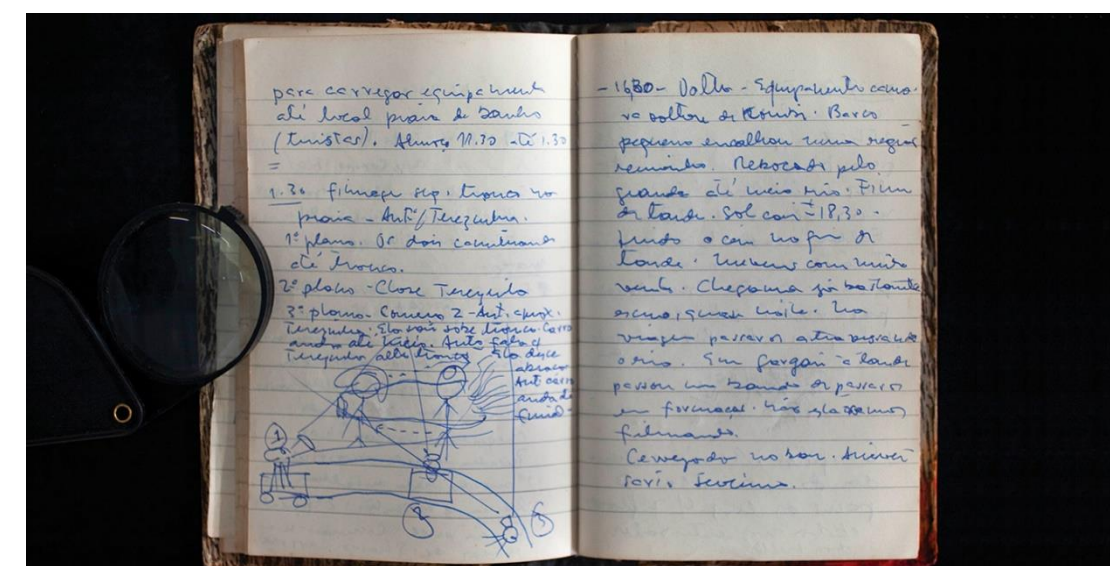 para carregar equipamento
até local praia de banho
(turistas). Almoço 11.30 até 1.30
=
1.30 filmagem seq. tronco na
praia - Ant./Terezinha.
1º plano. Os dois caminhando
até tronco.
2º plano - Close Terezinha
3º plano - Camera 2 - Ant. aprox.
Terezinha. Ela sobe tronco. Carro
anda até
Terezinha
Ela desce
abraça
Ant. carro
anda de
1
2
3
- 16,30 - Volta - Equipamento
volta de Kombi. Barco
pequeno encalhou numa região
Rebocado pelo
grande até meio rio. Fim
de tarde. Sol cai ± 18,30 -
lindo o céu no fim de
tarde. com muito
vento. Chegamos já bastante
escuro, quase noite. Na
viagem passaros atravessando
o rio. Em à tarde
passou um bando de passaros
em formação. Não estavamos
filmando.
Cervejada no bar.